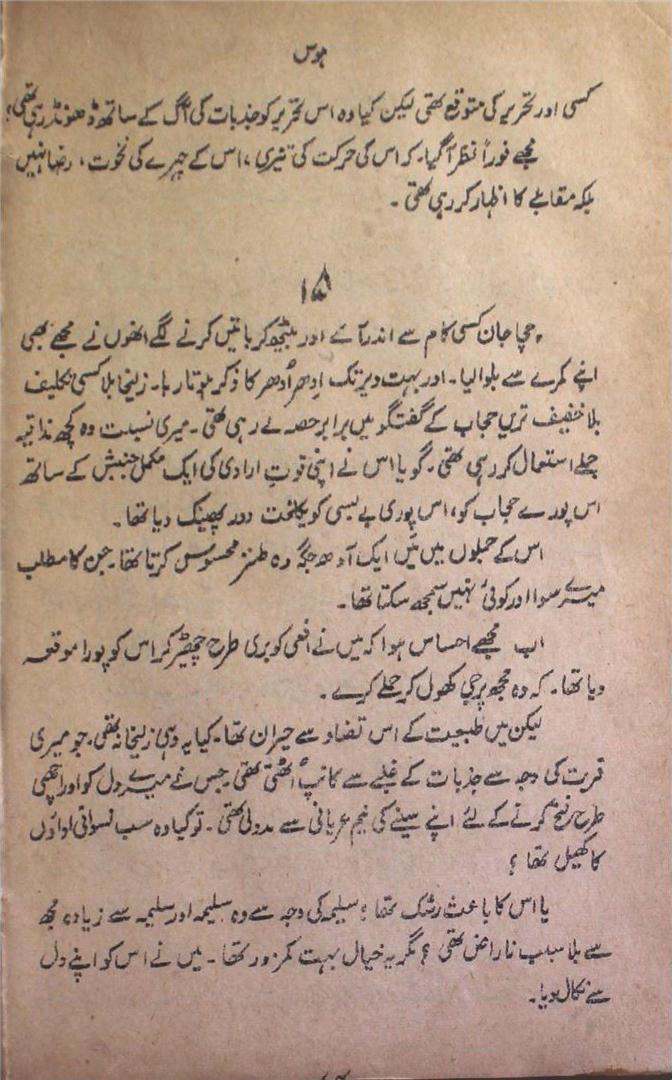 ہوس
کسی اور تحریر کی متوقع تھی لیکن کیا وہ اس تحریر کو جذبات کی آگ کے ساتھ ڈھونڈ رہی تھی؟
مجھے فوراً نظر آ گیا۔ کہ اس کی حرکت کی تیزی، اس کے چہرے کی نخوت، رضا نہیں
بلکہ مقابلے کا اظہار کر رہی تھی۔
۱۵
چچا جان کسی کام سے اندر آئے اور بیٹھ کر باتیں کرنے لگے انھوں نے مجھے بھی
اپنے کمرے سے بلوا لیا۔ اور بہت دیر تک اِدھر اُدھر کا ذکر ہوتا رہا۔ زلیخا بلا کسی تکلیف
بلا خفیف تریں حجاب کے گفتگو میں برابر حصہ لے رہی تھی۔ میری نسبت وہ کچھ مذاقیہ
جملے استعمال کر رہی تھی۔ گویا اس نے اپنی قوتِ ارادی کی ایک مکمل جنبش کے ساتھ
اس پورے حجاب کو، اس پوری بے بسی کو یکلخت دور پھینک دیا تھا۔
اس کے جملوں میں میں ایک آدھ جگہ وہ طنز محسوس کرتا تھا۔ جن کا مطلب
میرے سوا اور کوئی نہیں سمجھ سکتا تھا۔
اب مجھے احساس ہوا کہ میں نے افعی کو بری طرح چھیڑ کر اس کو پورا موقعہ
دیا تھا۔ کہ وہ مجھ پر جی کھول کر حملے کرے۔
لیکن میں طبیعت کے اس تضاد سے حیران تھا۔ کیا یہ وہی زلیخا نہ تھی۔ جو میری
قربت کی وجہ سے جذبات کے غلبے سے کانپ اُٹھتی تھی۔ جس نے میرے دل کو اور اچھی
طرح فتح کرنے کے لئے اپنے سینے کی نیم عریانی سے مدد لی تھی۔ تو کیا وہ سب نسوانی اداؤں
کا کھیل تھا؟
یا اس کا باعث رشک تھا؟ سلیمہ کی وجہ سے وہ سلیمہ اور سلیمہ سے زیادہ مجھ
سے بلا سبب ناراض تھی؟ مگر یہ خیال بہت کمزور تھا۔ میں نے اس کو اپنے دل
سے نکال دیا۔